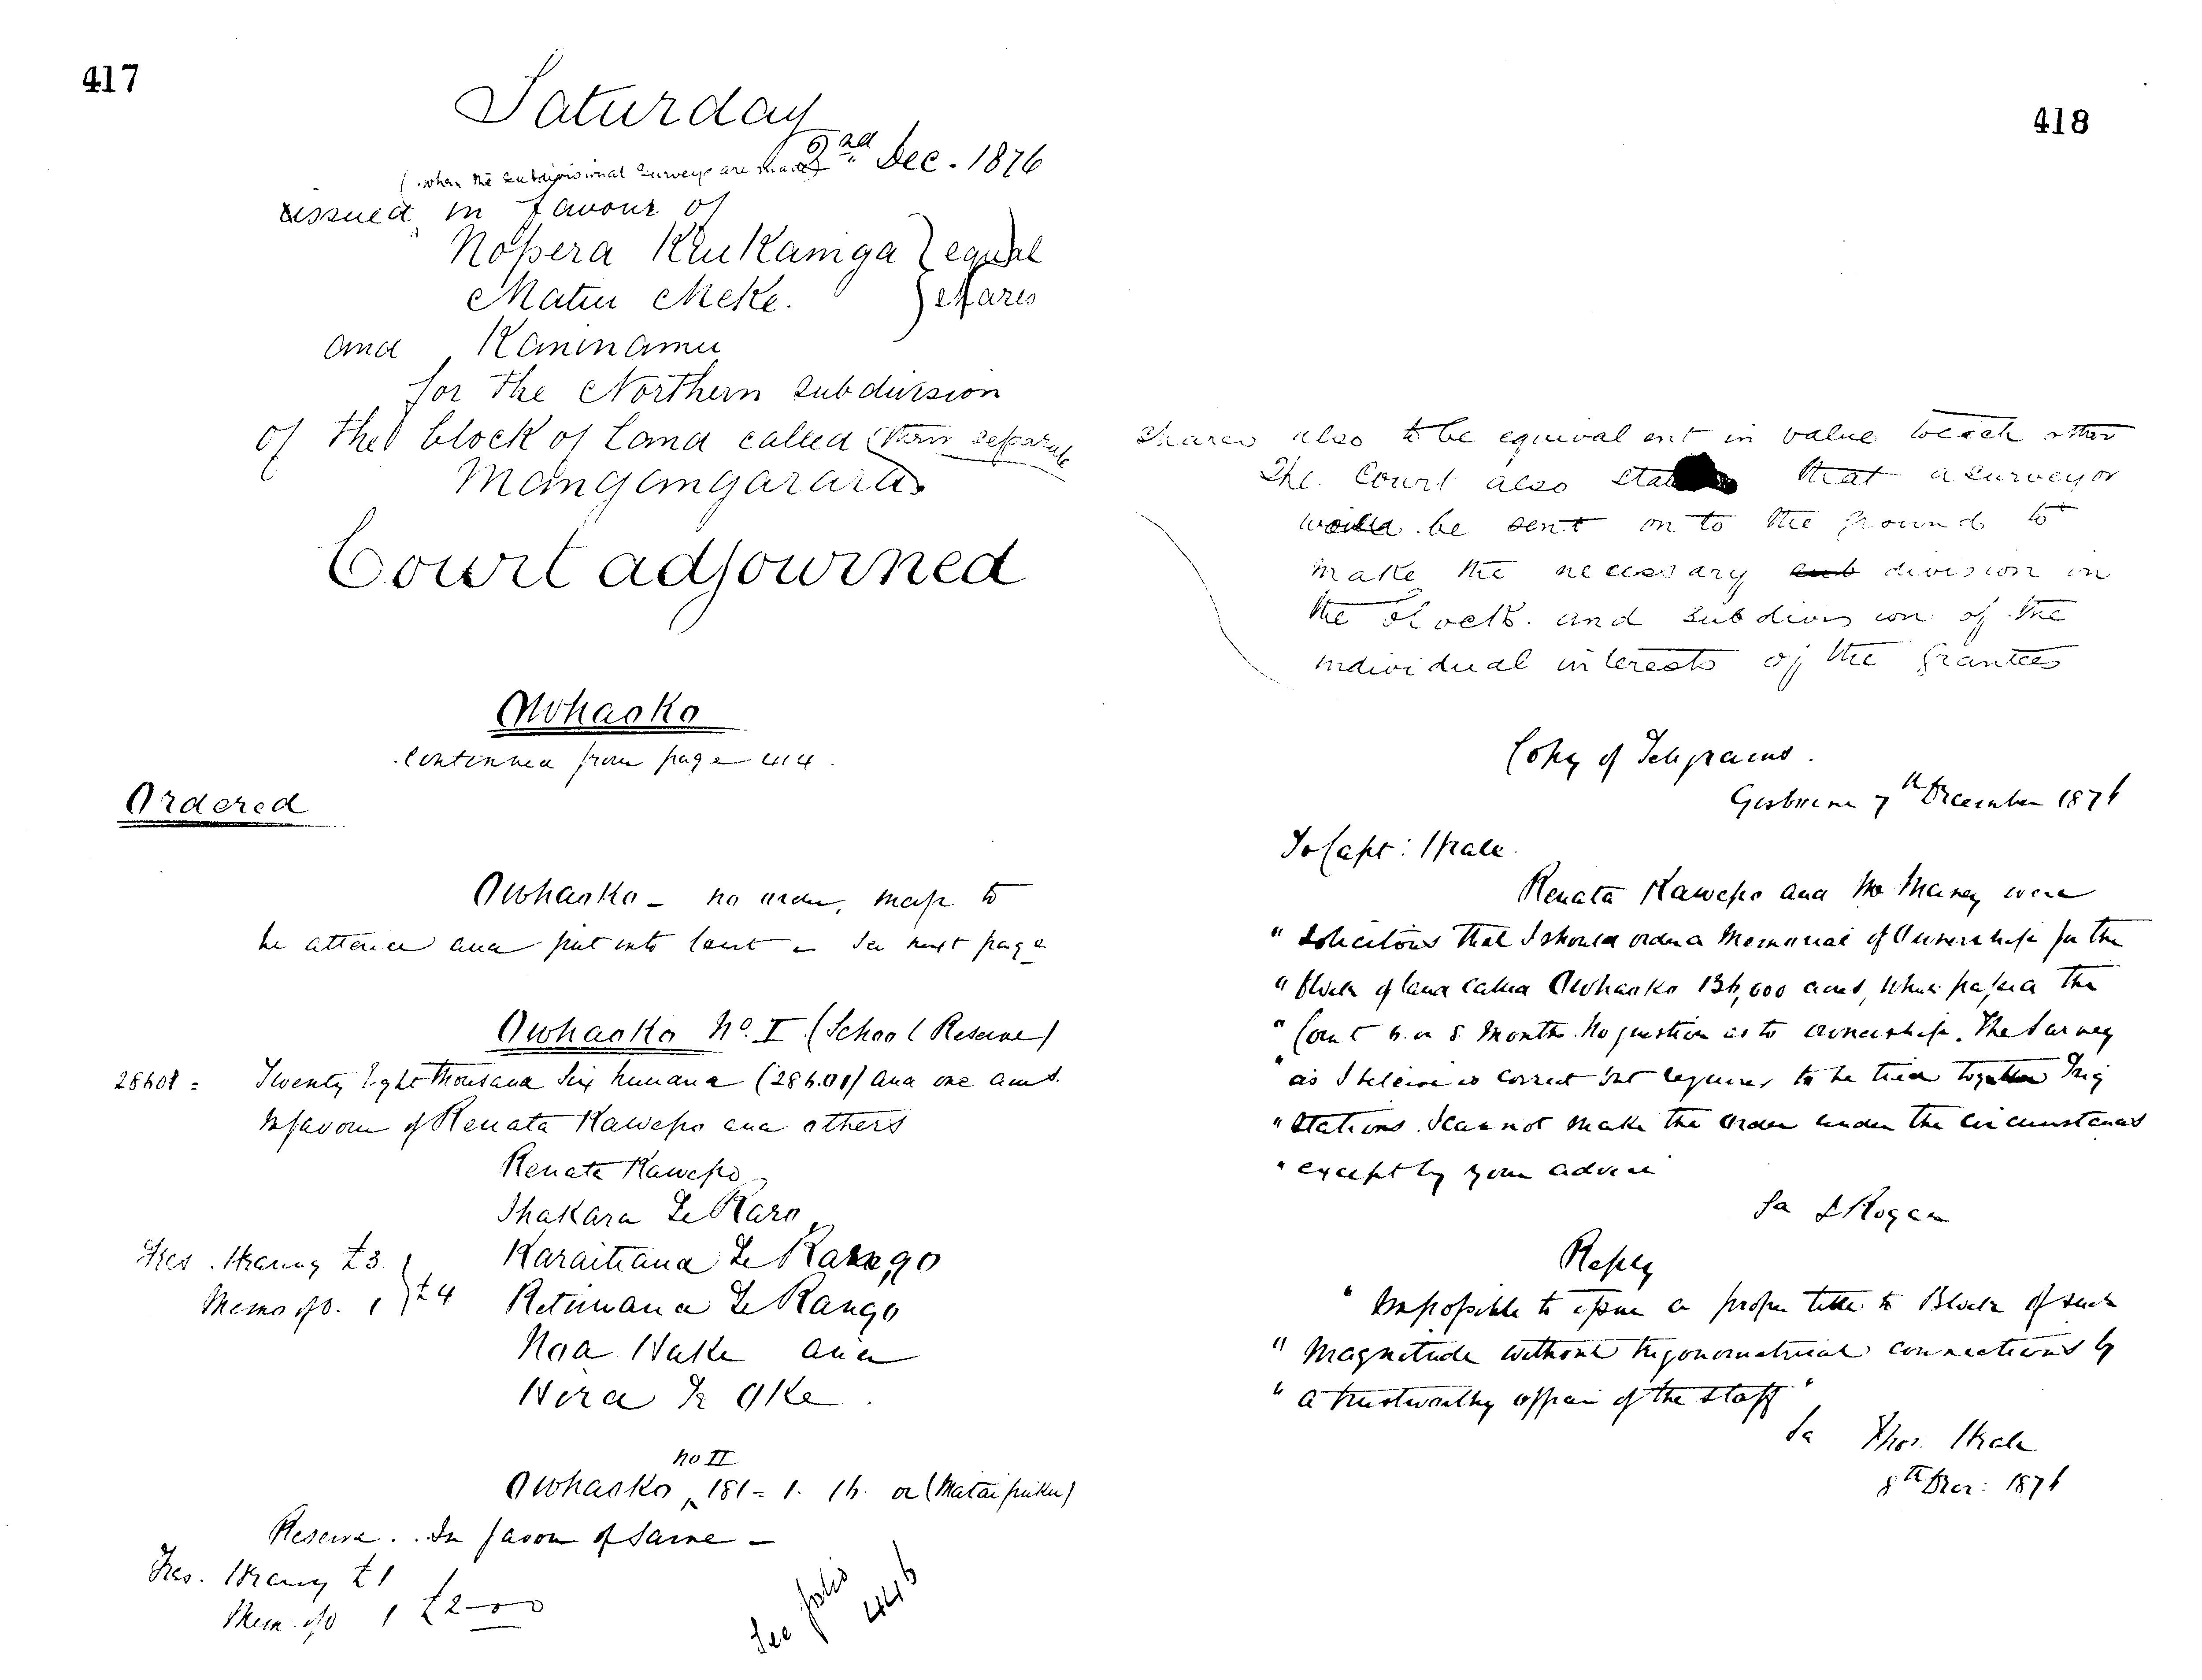 417
Saturday
2nd Dec. 1876
(when the subdivisional surveys are made)
issued in favour of
Nopera Kuikainga } equal
Matiu Meke. } shares
and Kaninamu
for the Northern subdivision
of the block of land called (their separate
Mangangarara
Court adjourned
Owhaoko
Continued from page 414.
Ordered
Owhaoko - no order, map to
be altered and put into Court - See next page
Owhaoko No. I (School Reserve)
28601 = Twenty Eight thousand Six hundred (28601) and one acres
In favour of Renata Kawepo and others
Renata Kawepo
Ihakara Te Raro
Karaitiana Te Rango
Retimana Te Rango
Noa Hake and
Hira Te Oke.
Fees. Hearing £3
Memo of O. 1 } £4
No II
Owhaoko 181 = 1. 16. or (Matai puku)
Reserve. In favour of Same -
Fees. Hearing £1
Mem: of O 1 £2-0-0
See folio
446
418
Shares also to be equivalent in value to each other
The Court also that a surveyor
would be sent on to the ground to
make the necessary sub division in
the block and subdivision of the
individual interests of the grantees
Copy of Telegrams.
Gisborne 7th December 1876
To Capt: Heale.
Renata Kawepo and were
" solicitous that I should order a Memorial of Ownership for the
" block of land called Owhaoko 136,000 acres, which passed the
" Court 6 or 8 Month. No question as to ownership. The Survey
" as I believe is correct but requires to be tied together Trig
" Stations. I cannot make the order under the circumstances
" except by your advice
J Rogan
Reply
" Impossible to issue a proper title to Block of such
" Magnitude without trigonometrical connections by
" a trustworthy officer of the staff "
Thos. Heale
8th Decr: 1876